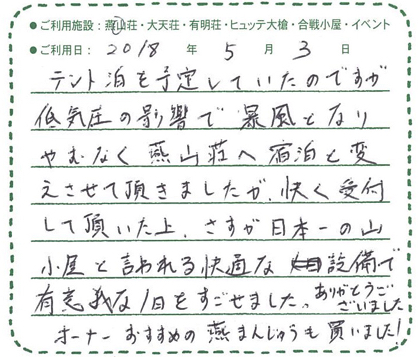 ●ご利用施設：燕山荘・大天荘・有明荘・ヒュッテ大槍・合戦小屋・イベント
●ご利用日：2018年5月3日
テント泊を予定していたのですが
低気圧の影響で暴風となり
やむなく燕山荘へ宿泊と変
えさせて頂きましたが、快く受付
して頂いた上、さすが日本一の山
小屋と言われる快適な設備で
有意義な1日をすごせました。ありがとうご
ざいました
オーナーおすすめの燕まんじゅうも買いました!